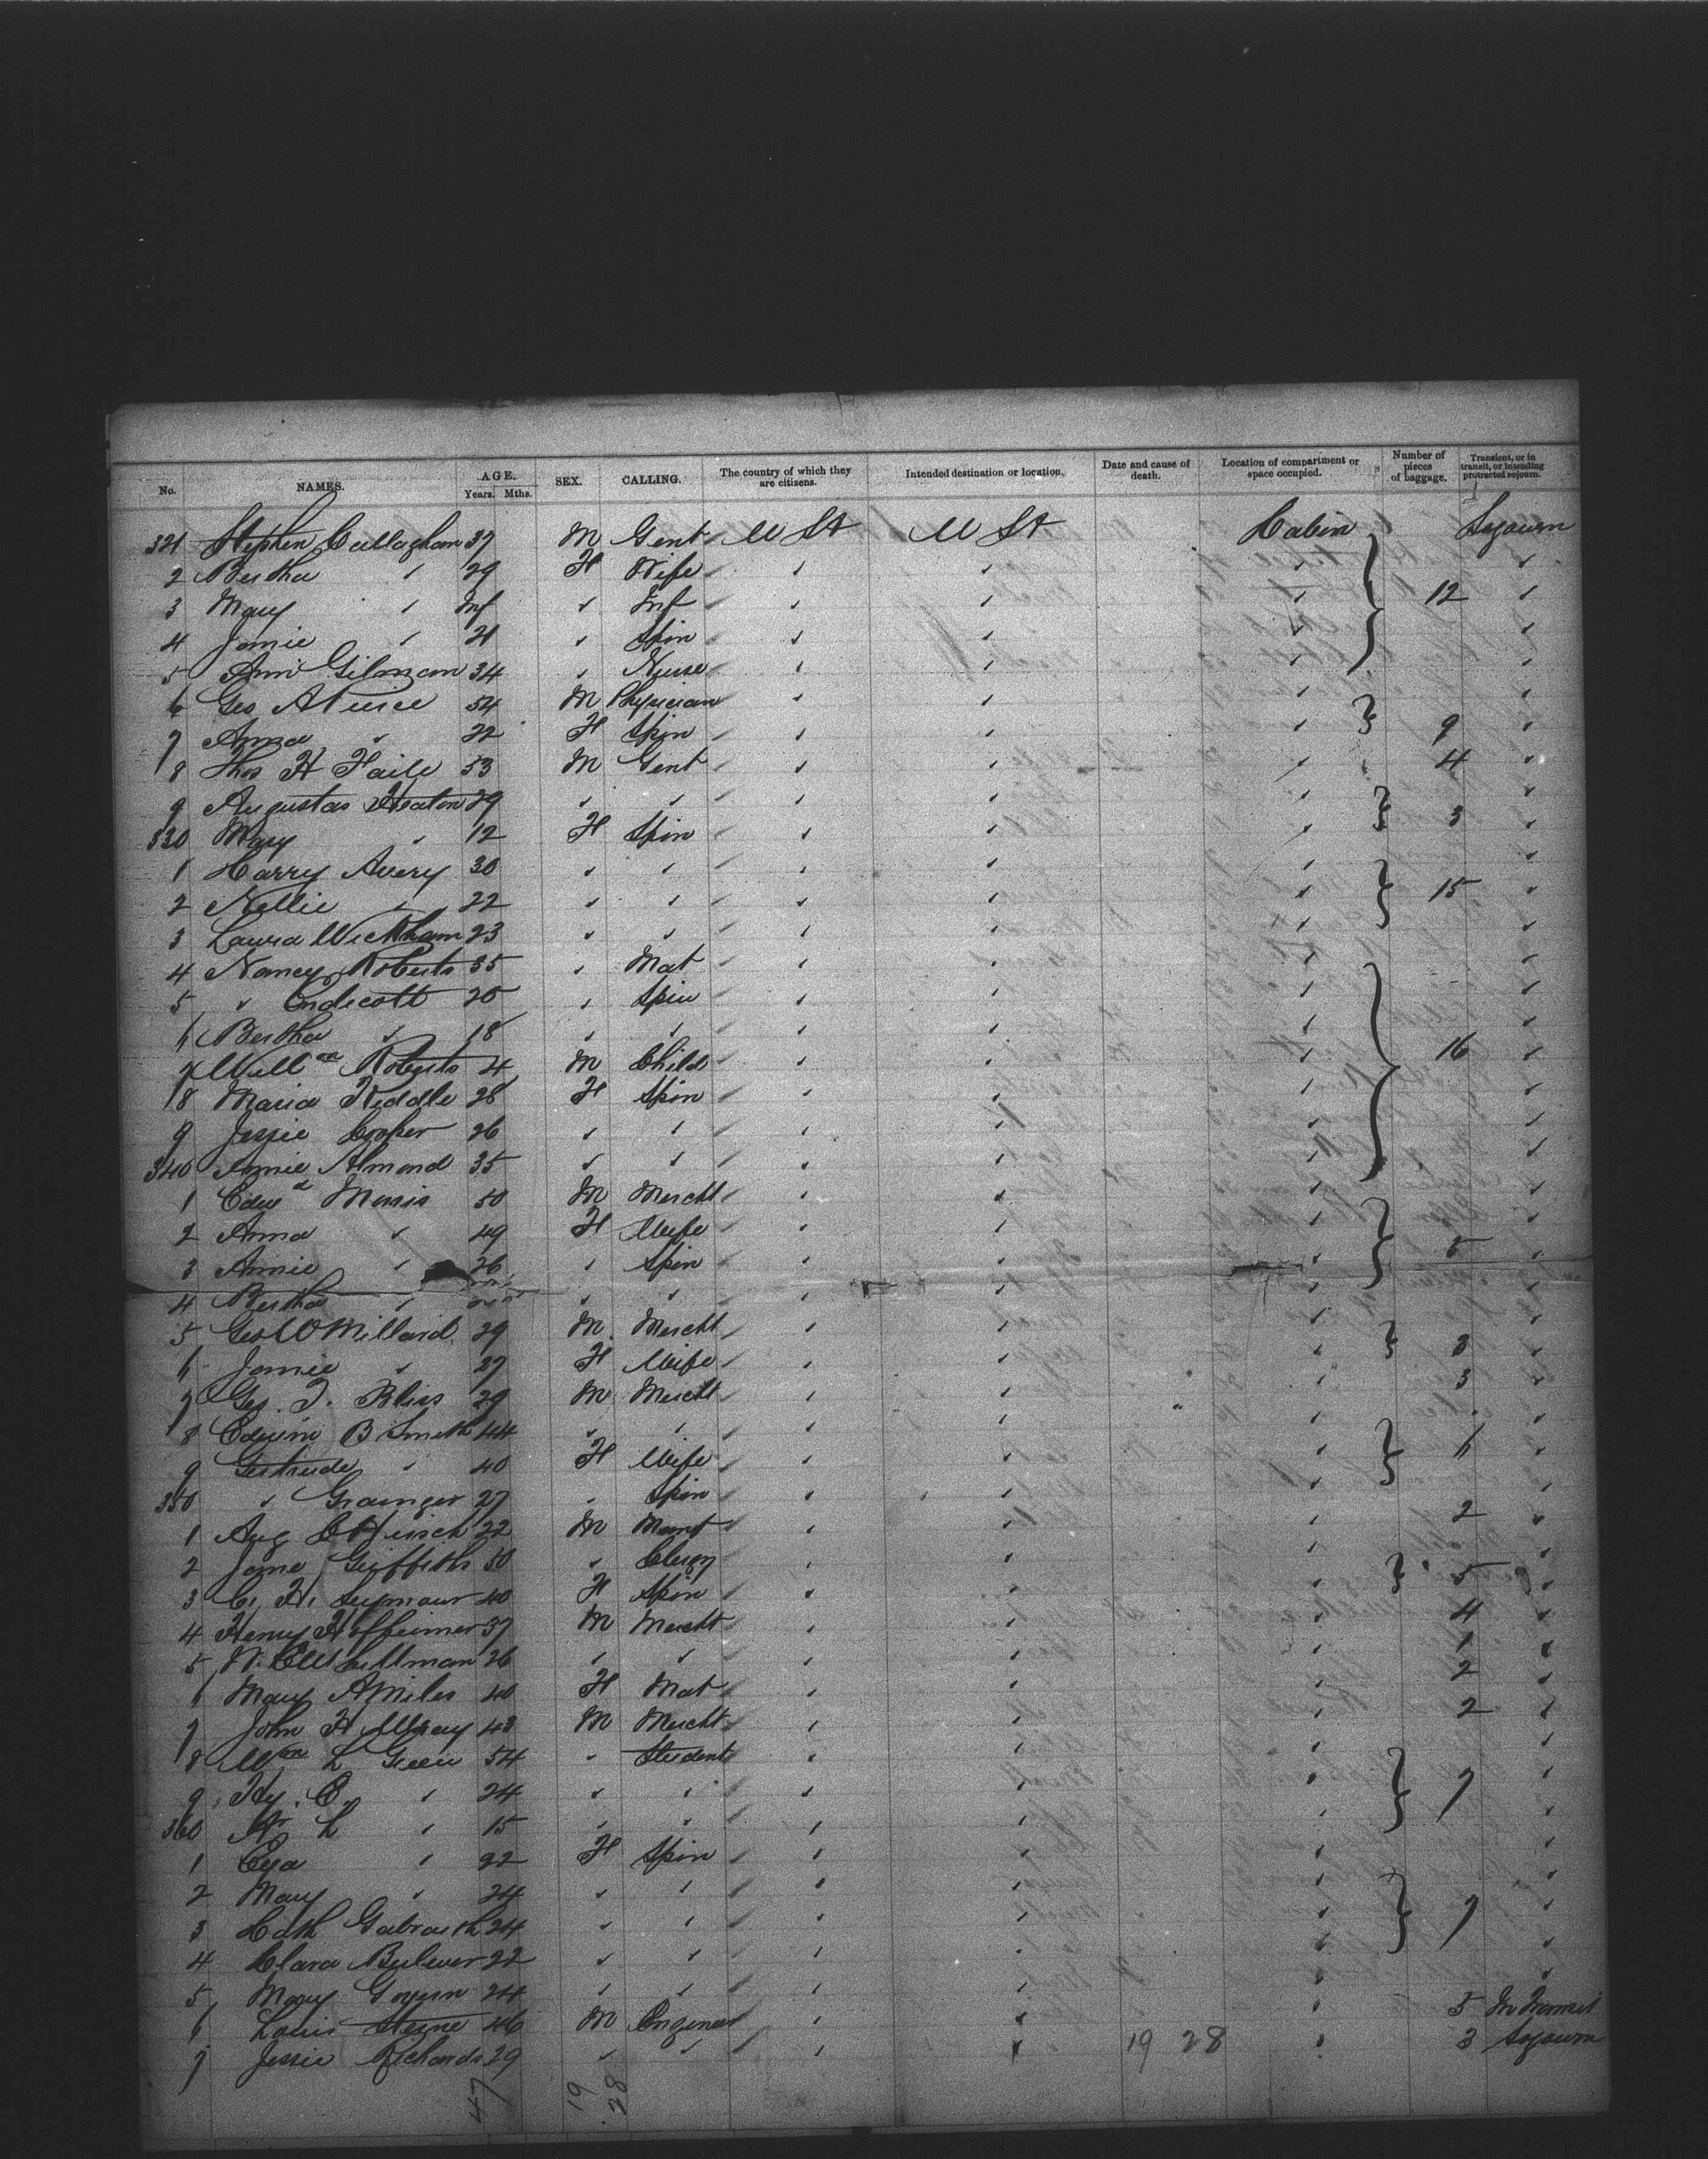 No. NAMES. AGE. Years. Mths. SEX. CALLING. The country of which they are citizens. Intended destination or location. Date and cause of death. Location of compartment or space occupied. Number of pieces of baggage. Transient, or in transit, or intending protracted sojourn.
321 Stephen Callaghan 37 M Gent U St U St Cabin Sojourn
2 Bertha " 29 F Wife " " " "
3 Mary " Inf " Inf " " " 12 "
4 Jamie " 21 " Spin " " " "
5 Ann Gilman 34 " Nurse " " " "
6 Geo A Peirce 54 M Physician " " " "
7 Anna " 22 F Spin " " " 9 "
8 Thos H Faile 53 M Gent " " " 4 "
9 Augustus Heaton 39 " " " " " "
330 Mary " 12 F Spin " " " 3 "
1 Harry Avery 30 " " " " " "
2 Nellie " 22 " " " " " 15 "
3 Laura Wickham 23 " " " " " "
4 Nancy Roberts 55 " Mat " " " "
5 " Endicott 20 " Spin " " " "
6 Bertha " 18 " " " " " "
7 Willm Roberts 4 M Child " " " 16 "
8 Maria Kiddle 28 F Spin " " " "
9 Jessie Cooper 26 " " " " " "
340 Annie Almond 35 " " " " " "
1 Edwd Morris 50 M Mercht " " " "
2 Anna " 49 F Wife " " " "
3 Annie " 26 " Spin " " " 5 "
4 Bertha " " " " " " "
5 Geo W Millard 29 M Mercht " " " "
6 Jamie " 27 F Wife " " " 3 "
7 Geo. T. Bliss 29 M Mercht " " " 3 "
8 Edwin B Smith 44 " " " " " "
9 Gertrude " 40 F Wife " " " 6 "
350 " Grainger 27 " Spin " " " "
1 Aug C Hirsch 22 M Mercht " " " 2 "
2 Jane Griffiths 50 " Clergy " " " "
3 C. H. Seymour 40 F Spin " " " 5 "
4 Henry Hoffheimer 37 M Mercht " " " 4 "
5 W. E. Whillman 26 " " " " " 1 "
6 Mary A Miles 40 F Mat " " " 2 "
7 John H Wray 43 M Mercht " " " 2 "
8 Wm L Green 54 " Student " " " "
9 Hy. E. " 24 " " " " " 7 "
360 L " 15 " " " " " "
1 Eva " 22 F Spin " " " "
2 Mary " 24 " " " " " "
3 Cath Galraith 24 " " " " " 7 "
4 Clara Bulwer 22 " " " " " "
5 Mary Govern 24 " " " " " "
6 Louis Steine 46 M Engineer " " " 5 In Transit
7 Jessie Richards 29 " " " " 19 28 " 3 Sojourn
47 19 28